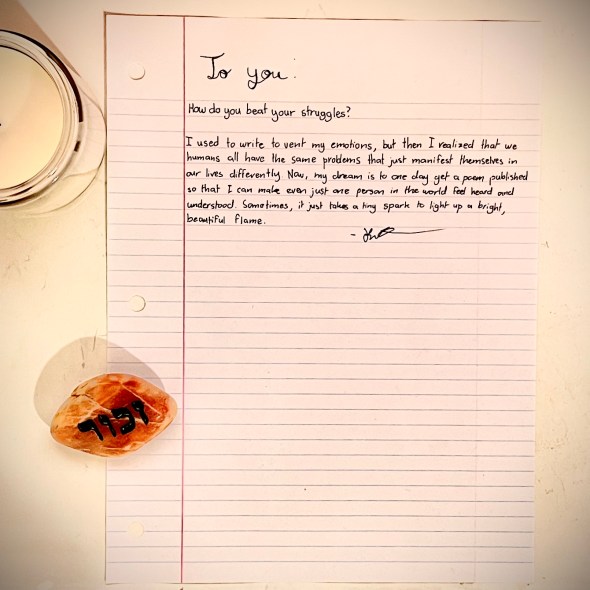 To you:
How do you beat your struggles?
I used to write to vent my emotions, but then I realized that we
humans all have the same problems that just manifest themselves in
our lives differently. Now, my dream is to one day get a poem published
so that I can make even just one person in the world feel heard and
understood. Sometimes, it just takes a tiny spark to light up a bright,
beautiful flame.
זכור